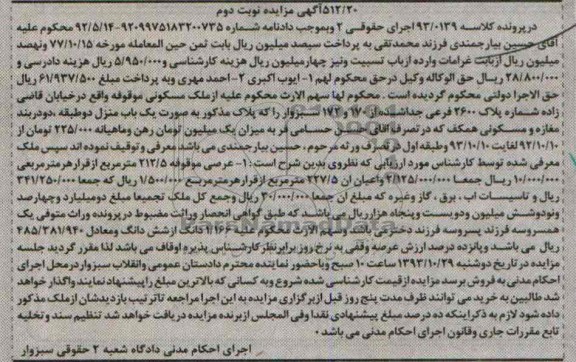 ۵۱۲/۲۰آگهی مزایده نوبت دوم
درپرونده کلاسه ۹۳/۰۱۳۹ اجرای حقوقی ۲ وبموجب دادنامه شماره ۹۲۰۹۹۷۵۱۸۳۲۰۰۷۳۵-۹۲/۵/۱۴ محکوم علیه
آقای حسین بیارجمندی فرزند محمدتقی به پرداخت سیصد میلیون ریال بابت ثمن حین المعامله مورخه ۷۷/۱۰/۱۵ ونهصد
میلیون ریال ازبابت غرامات وارده ازباب تسبیب ونیز چهارمیلیون ریال هزینه کارشناسی و۵/۹۵۰/۰۰۰ ریال هزینه دادرسی و
۲۸/۸۰۰/۰۰۰ ریال حق الوکاله وکیل درحق محکوم لهم ۱- ایوب اکبری ۲- احمد مهری وبه پرداخت مبلغ ۶۱/۹۳۷/۵۰۰ ریال
حق الاجرا دولتی محکوم گردیده است . محکوم لها سهم الارث محکوم علیه ازملک مسکونی موقوفه واقع درخیابان قاضی
زاده شماره پلاک ۲۶۰۰ فرعی جداشده از ۱۷۰ و ۱۷۲ سبزوار را که پلاک مذکور به صورت یک باب منزل دوطبقه ،دودربند
مغازه و مسکونی همکف که در تصرف آقای حسامی فر به میزان یک میلیون تومان رهن وماهیانه ۲۲۵/۰۰۰ تومان از
۹۲/۱۰/۱۰ لغایت ۹۳/۱۰/۱۰ وطبقه اول در تصرف ورثه مرحوم ، حسین بیارجمندی می باشد معرفی و توقیف نموده اند سپس ملک
معرفی شده توسط کارشناس مورد ارزیابی که نظروی بدین شرح است : ۱- عرصه موقوفه ۲۱۲/۵ مترمربع ازقرارهرمترمربعی
۱۰/۰۰۰/۰۰۰ ریال جمعا ۲/۱۲۵/۰۰۰/۰۰۰ واعیان ان ۲۲۷/۵ مترمربع ازقرارهرمترمربع ۱/۵۰۰/۰۰۰ ریال که جمعا ۳۴۱/۲۵۰/۰۰۰
ریال و تاسیسات اب ، برق ، گاز وغیره که مبلغ ان جمعا ۳۰/۰۰۰/۰۰۰ ریال وجمع کل ملک تجمیعا مبلغ دومیلیارد وچهارصد
ونودوشش میلیون ودویست وپنجاه هزارریال می باشد که طبق گواهی انحصار وراثت مضبوط درپرونده وراث متوفی یک
همسروسه فرزند پسروسه فرزند دختر سهم الارث محکوم علیه ۱/۱۶۶ دانگ ازشش دانگ ومعادل ۴۸۵/۳۸۱/۹۴۰
ریال می باشد و پانزده درصد ارزش عرصه وقفی به نرخ روز برابرنظر کارشناس پذیره اوقاف می باشد لذا مقرر گردید جلسه
مزایده در تاریخ دوشنبه ۱۳۹۳/۱۰/۲۹ ساعت ۱۰ صبح وباحضور نماینده محترم دادستان عمومی وانقلاب سبزوار درمحل اجرای
احکام مدنی به فروش برسد مزایده ازقیمت کارشناسی شده شروع وبه کسانی که بالاترین مبلغ راپیشنهاد نمایند واگذار خواهد
شد طالبین به خرید می توانند ظرف مدت پنج روز قبل ازبرگزاری مزایده به این اجرا مراجعه تاترتیب بازدیدشان ازملک مذکور
داده شود لازم به ذکراینکه ده درصد مبلغ پیشنهادی نقدا وفی المجلس ازبرنده مزایده دریافت خواهد شد تنظیم سند و تخلیه
تابع مقررات جاری وقانون اجرای احکام مدنی می باشد.
اجرای احکام مدنی دادگاه شعبه ۲ حقوقی سبزوار